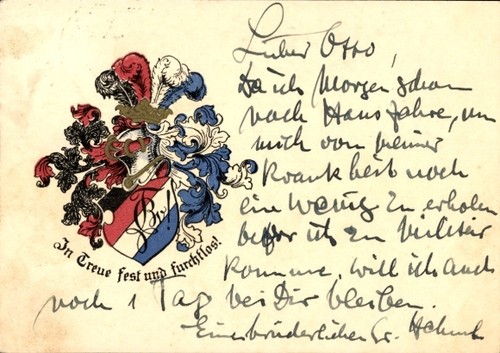 Lieber Otto,
Da ich Morgen schon
nach Haus fahre, um
mich von meiner
Krankheit noch
ein wenig zu erholen
bevor ich zu Militär
komme, will ich auch
noch 1 Tag bei Dir bleiben.
Einen brüderlichen Gr. Helmut
In Treue fest und furchtlos!